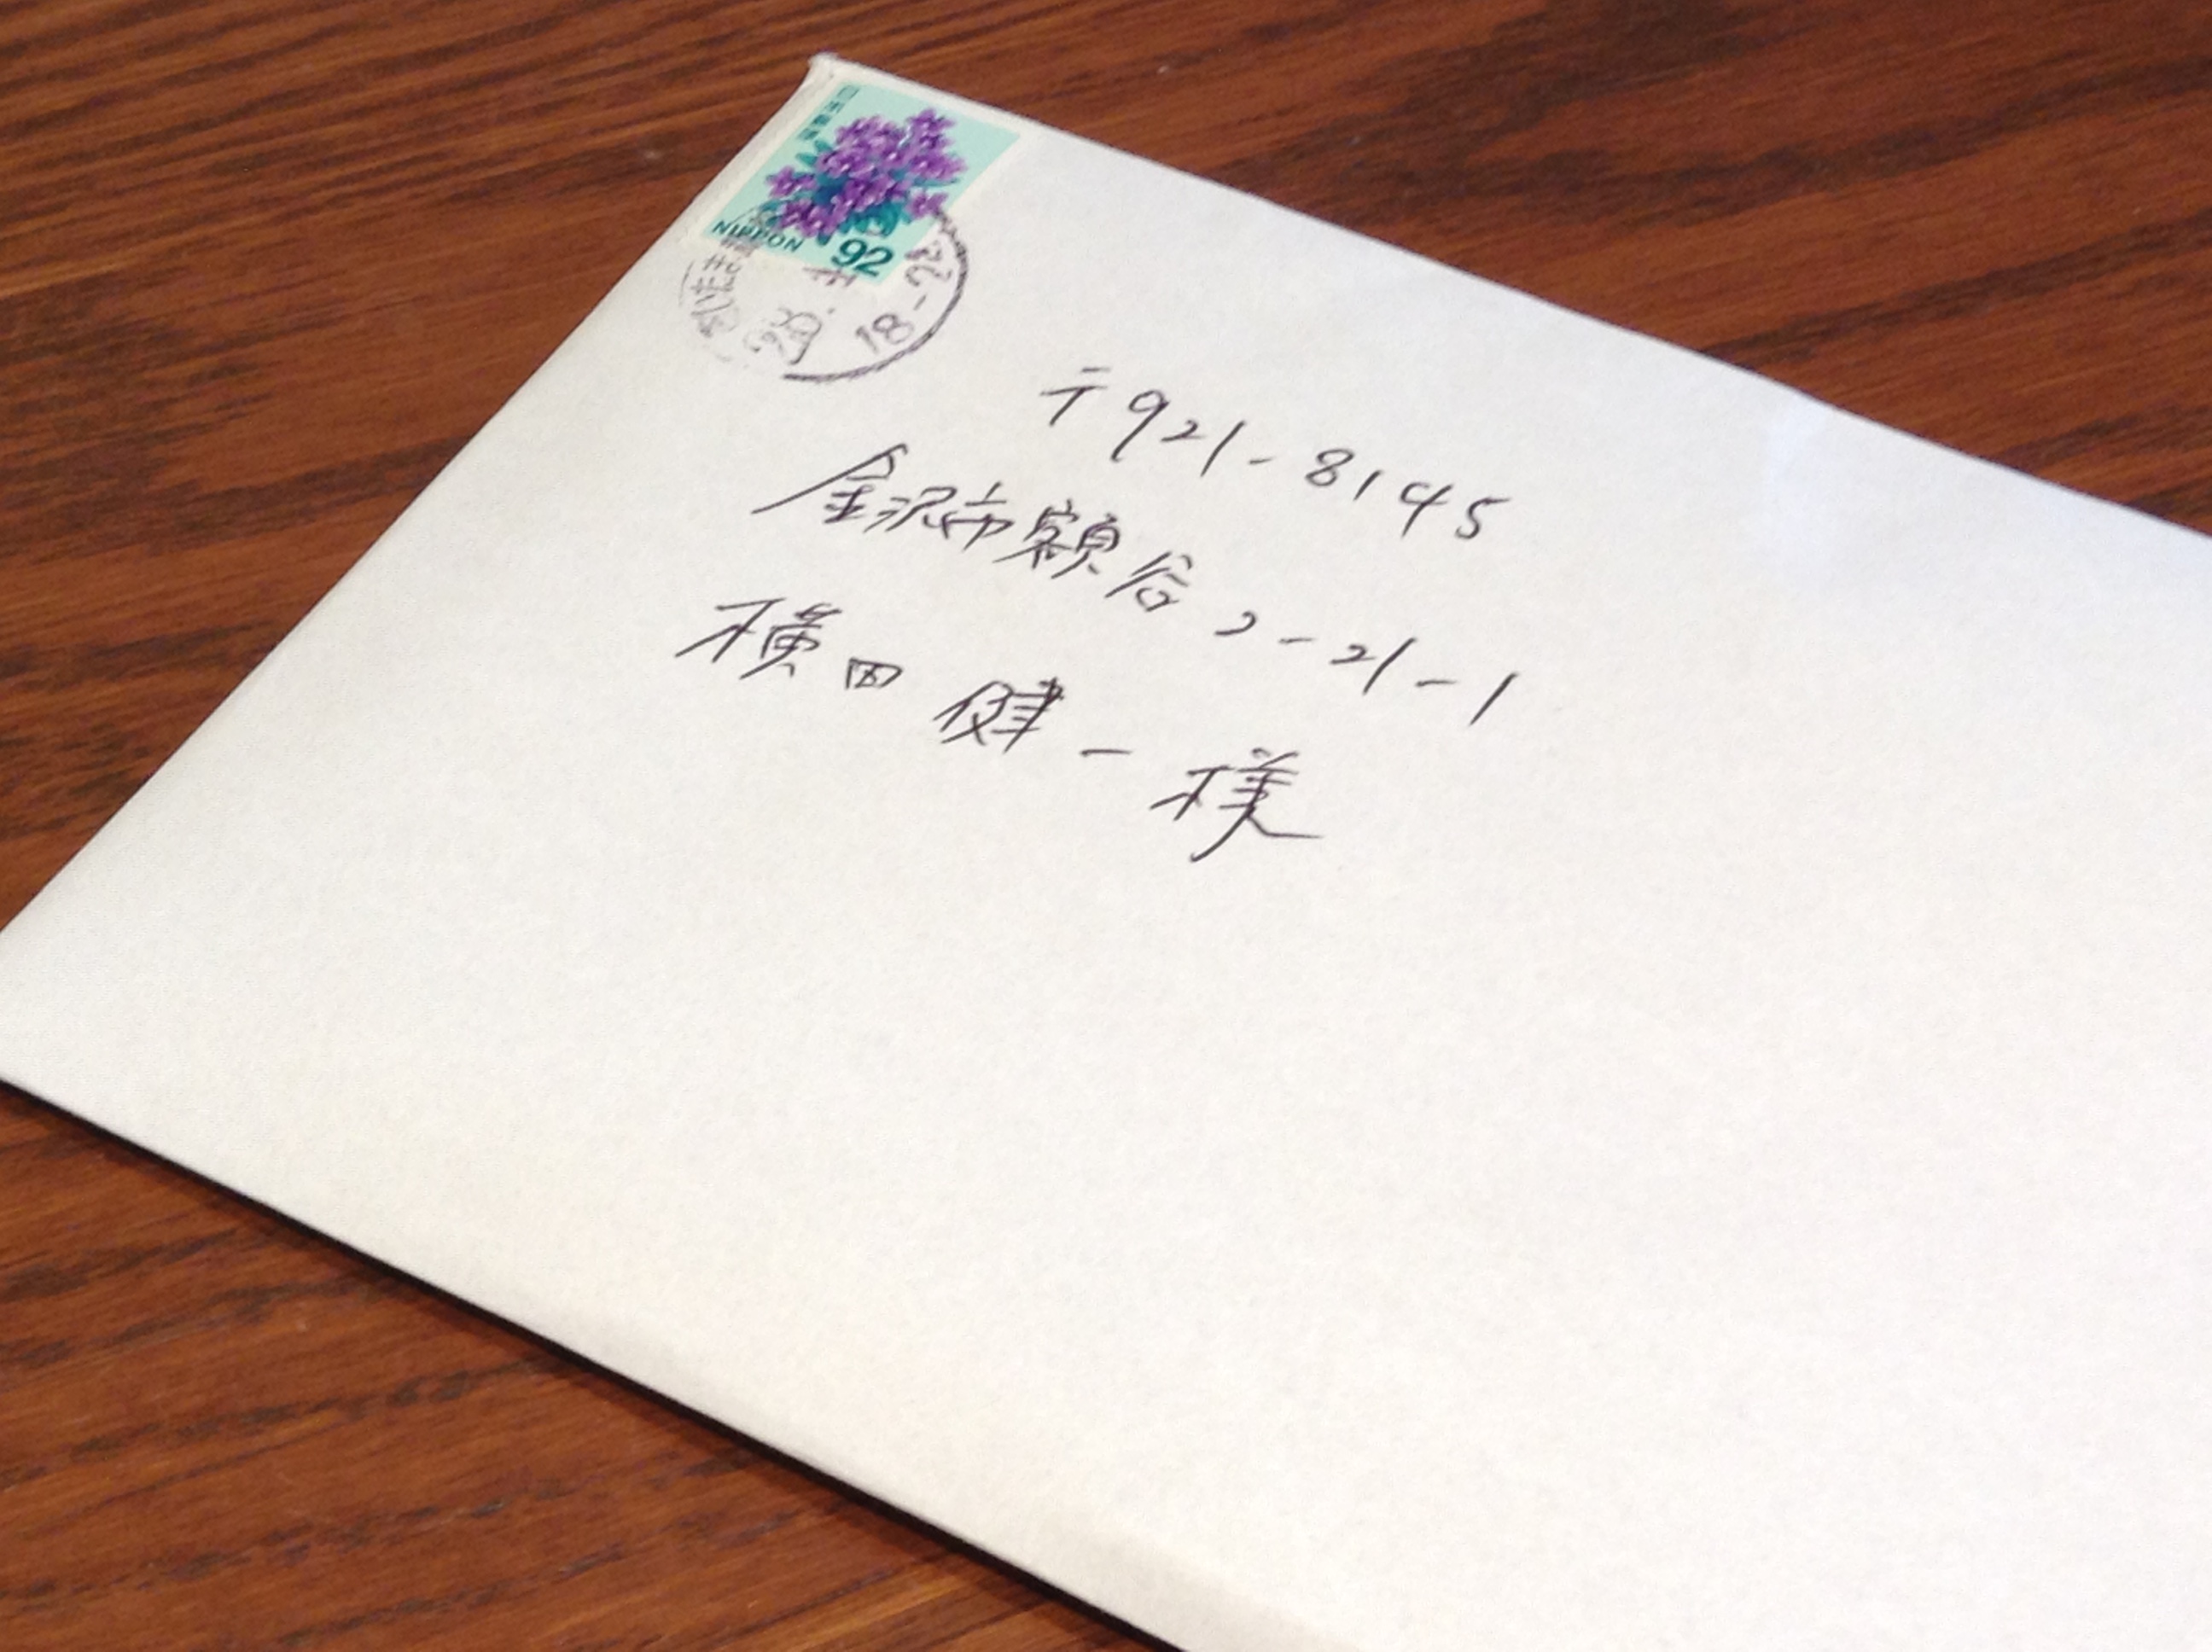 日本郵便
NIPPON 92
18-24
〒921-8145
金沢市額谷2-21-1
横田健一様